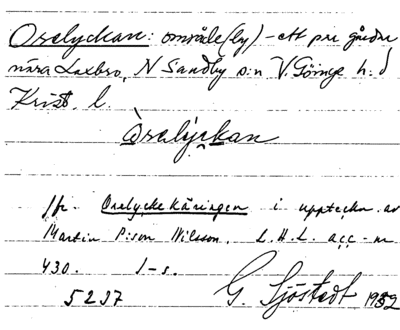 Orelyckan: område (by) - ett par gårdar
nära Laxbro, N Sandby s:n V. Göinge h. d
Krist. l.
Òrelýckan
Jfr. Orelycke käringen i uppteckn. av
Martin P:son Nilsson. L.H.L. acc-nr
430. 1-s.
5237 G. Sjöstedt 1932